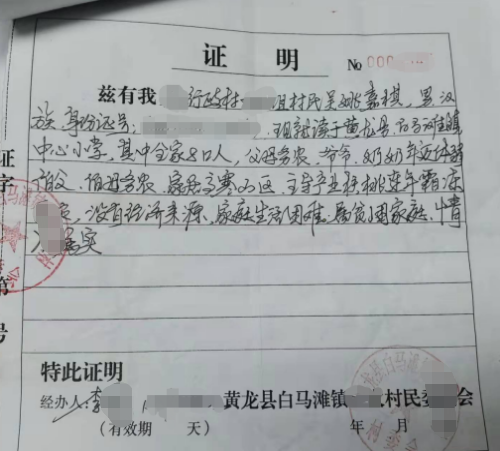 证 明
№ 000
兹有我 行政村 组村民吴姚嘉祺,男汉
族身份证号: 现就读于黄龙县白马滩镇
中心小学,其中全家8口人,父母务农,爷爷、奶奶年
伯父、伯母务农,居住高寒山区,主导产业核桃连年霜冻
没有经济来源,家庭生活困难.属贫困家庭,情
况属实
证
字
第
号
特此证明
经办人:李 黄龙县白马滩镇 村民委 会
(有效期 天) 年 月